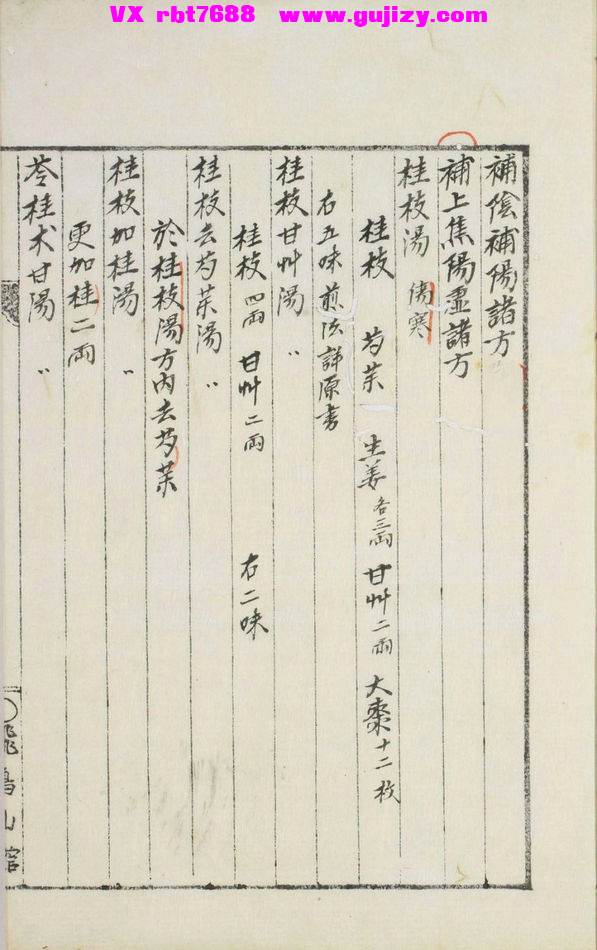 VX rbt7688 www.gujizy.com
補陰補陽諸方
補上焦陽虛諸方
桂枝湯 傷寒
桂枝 芍茱 生姜各三兩 甘艸二兩 大棗十二枚
右五味煎法詳原書
桂枝甘艸湯 〃
桂枝四兩 甘艸二兩 右二味
桂枝去芍茱湯 〃
於桂枝湯方內去芍茱
桂枝加桂湯 〃
更加桂二兩
苓桂术甘湯 〃
山館